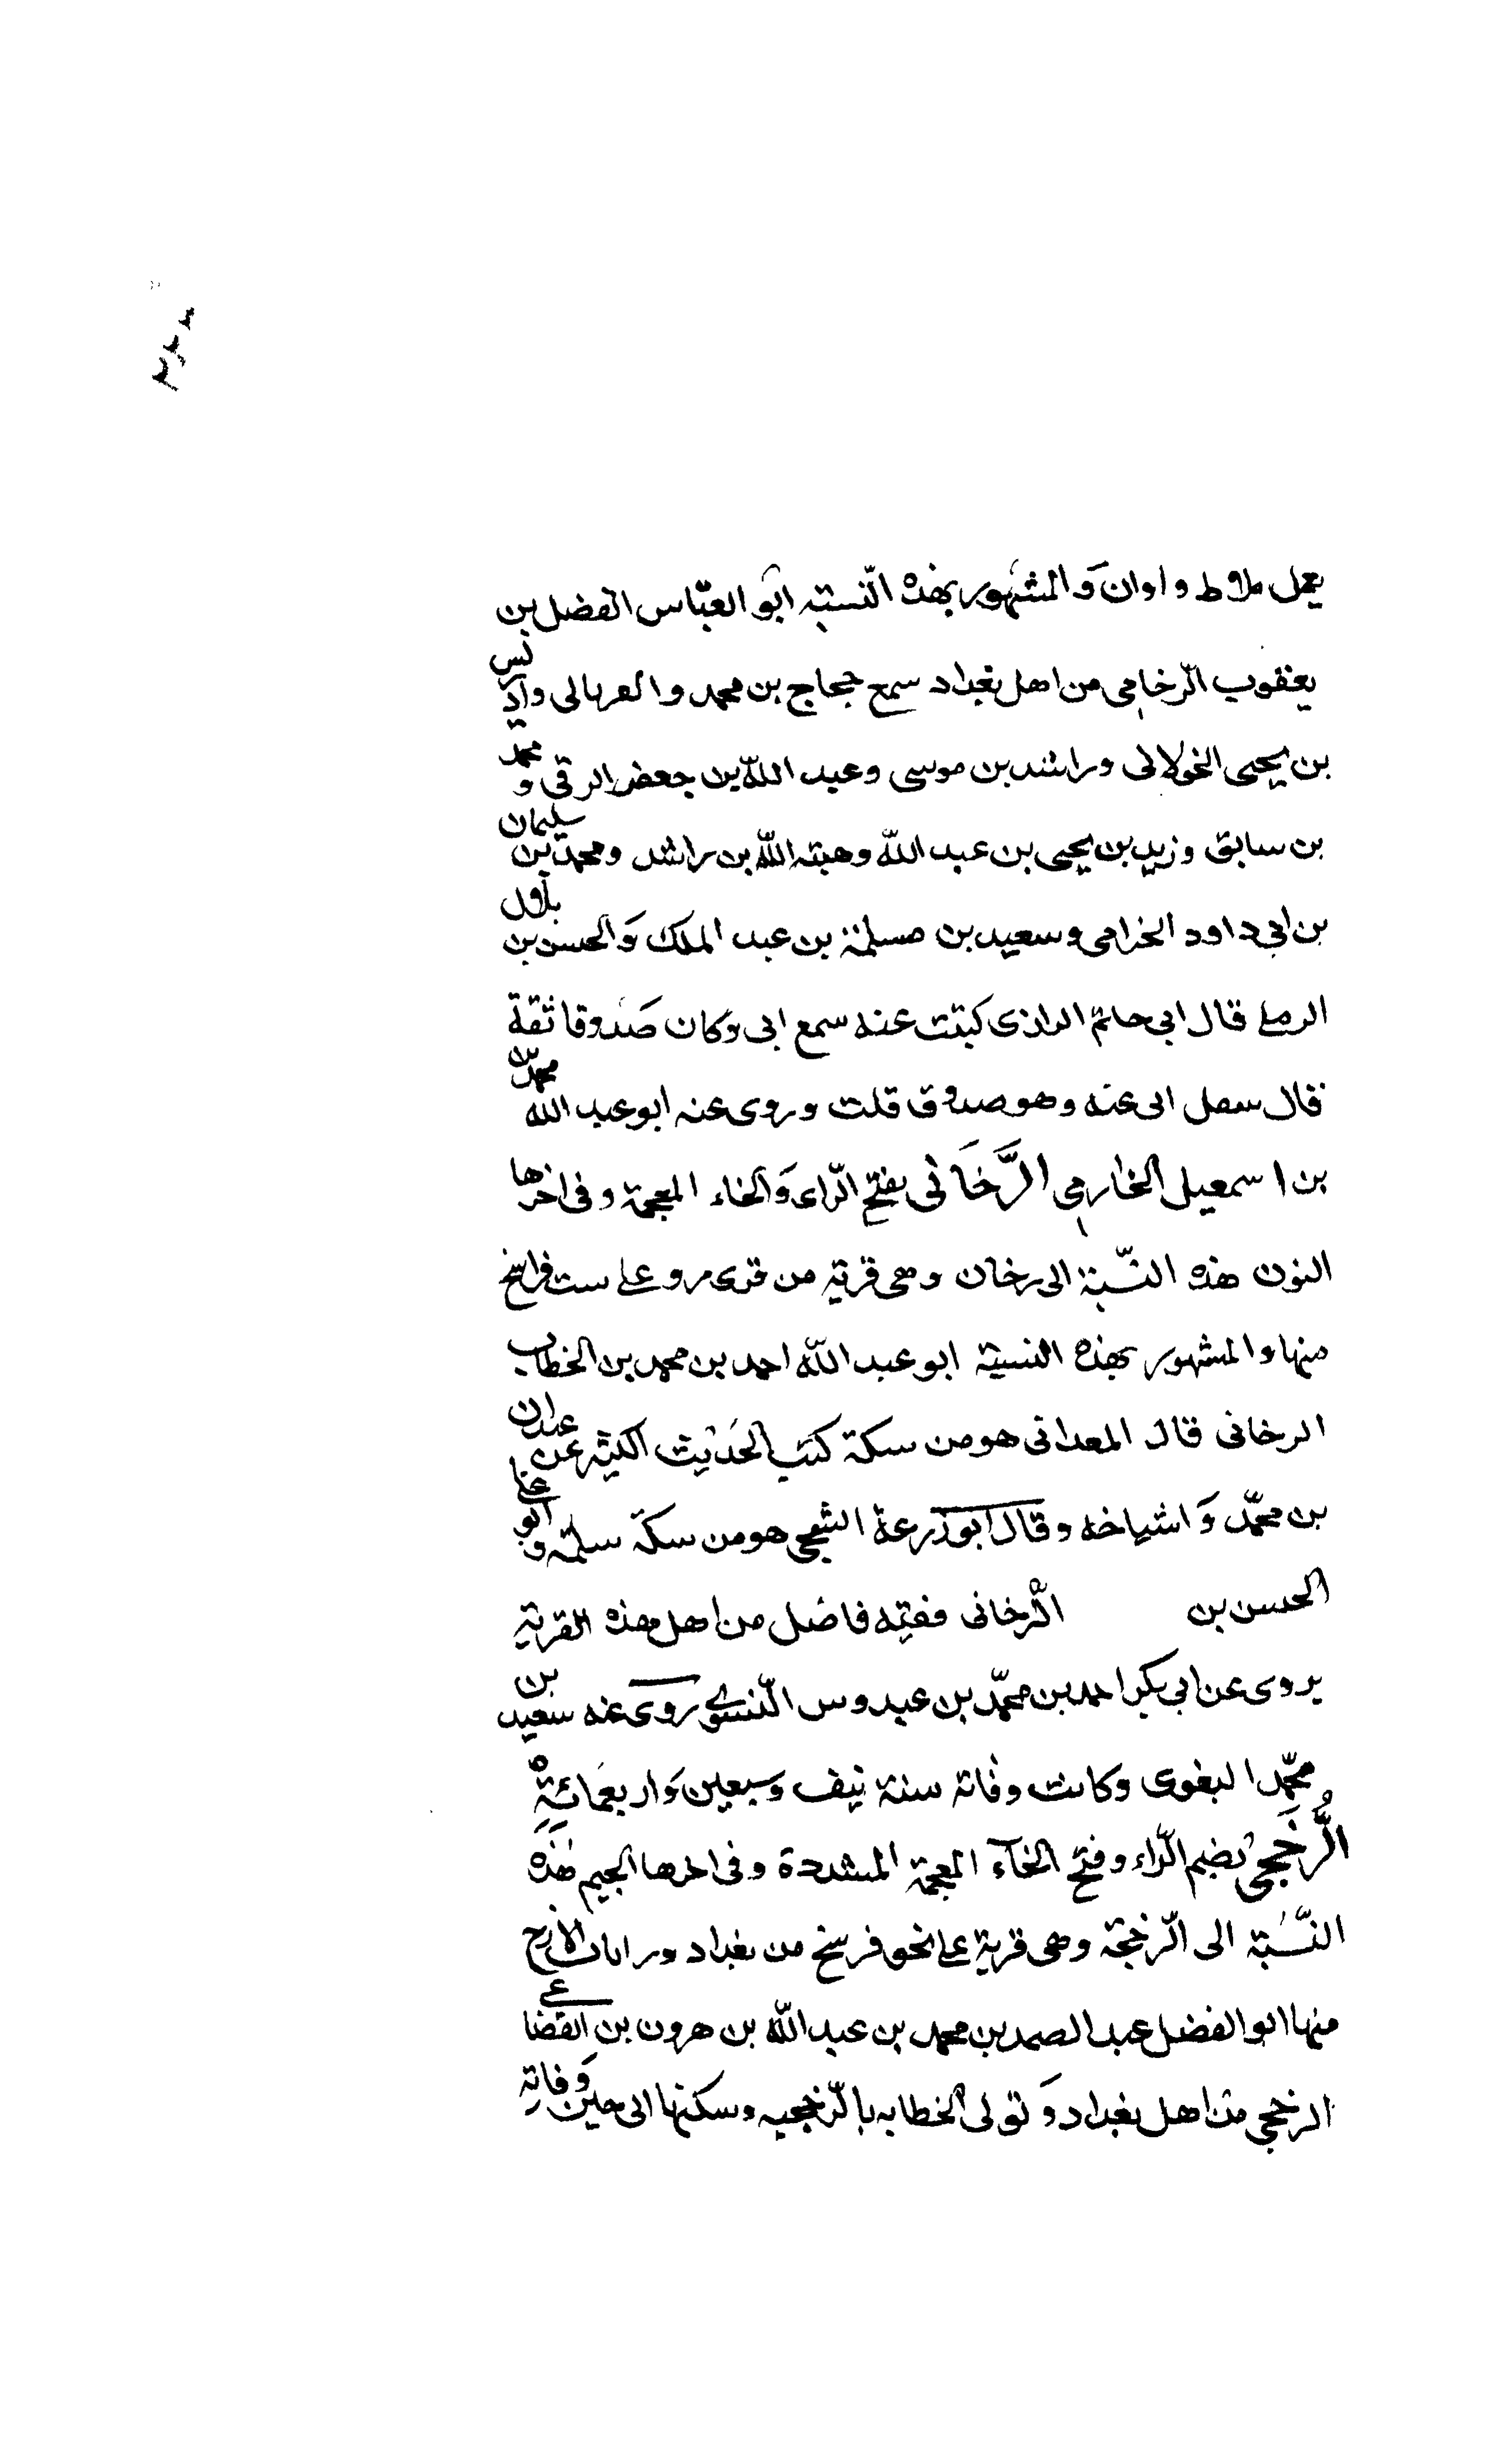 يعمل ملاط واوان والمشهور بهذه النسبة ابو العباس الفضل بن
يعقوب الرخامى من اهل بغداد سمع حجاج بن محمد والفريابى وادريس
بن يحيى الخولانى وراشد بن موسى وعبد الله بن جعفر الرقى ومحمد
بن سابق وزيد بن يحيى بن عبد الله وهبة الله بن راشد ومحمد بن سليمان
بن ابى داود الحرامى وسعيد بن مسلمة بن عبد الملك والحسن بن بلال
الرملى قال ابى حاتم الرازى كتبت عنه سمع ابى وكان صدوقا ثقة
قال سىل ابى عنه وهو صدوق قلت وروى عنه ابو عبد الله محمد بن
بن اسمعيل المخارمى الرَّخَانى بفتح الراى والخاء المعجمة وفى اخرها
النون هذه النسبة الى رخان وهى قرية من قرى مرو على ست فراسخ
منها والمشهور بهذه النسبة ابو عبد الله احمد بن محمد بن الخطاب
الرخانى قال المعدانى هو من سكة كتب الحديث الكثير عن عبدان
بن محمد واشياخه وقال ابو زرعة السنجى هو من سكة سلمة وابو على
الحسن بن الرخانى فقيه فاضل من اهل هذه القرية
يروى عن ابى بكر احمد بن محمد بن عبدوس النسوى روى عنه سعيد بن
محمد البغوى وكانت وفاته سنة نيف وسبعين واربعمائة
الرُّخَّجى بضم الراء وفتح الخاء المعجمة المشددة وفى اخرها الجيم هذه
النسبة الى الرخجة وهى قرية على نحو فرسخ من بغداد وراباب الازج
منها ابو الفضل عبد الصمد بن محمد بن عبد الله بن هرون بن القضاعى
الرخجى من اهل بغداد وتولى الخطابه بالرخجيه وسكنها الى حين وفاته